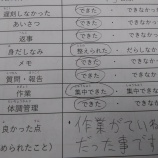 遅刻しなかった できた ・ できなか
あいさつ できた ・ できなか
返事 できた ・ できなか
身だしなみ 整えられた ・ だらしなか
メモ できた ・ できなか
質問・報告 できた ・ できなか
作業 集中できた ・ 集中できな
体調管理 できた ・ できなか
良かった点 作業がていね
められたこと) だった事です